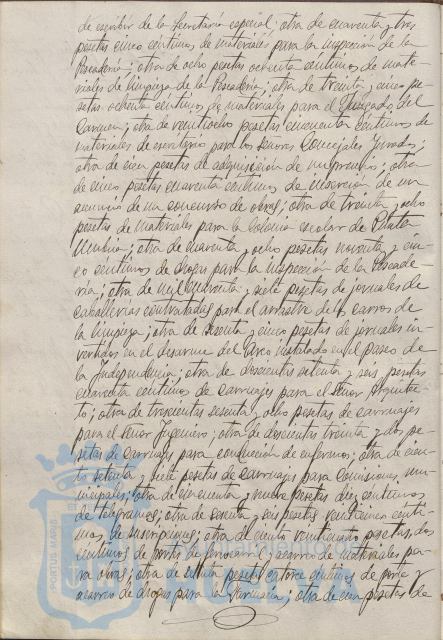 de escribir de la Secretaría especial; otra de cuarenta y tres
pesetas cinco céntimos de materiales para la inspección de la
Pescadería; otra de ocho pesetas ochenta céntimos de mate-
riales de limpieza de la Pescadería; otra de treinta y cinco pe-
setas ochenta céntimos de materiales para el Juzgado del
Carmen; otra de veintiocho pesetas cincuenta céntimos de
materiales de escritorio para los Señores Concejales Jurados;
otra de cien pesetas de adquisición de un premio; otra
de cinco pesetas cuarenta céntimos de inserción de un
anuncio de un concurso de obras; otra de treinta y ocho
pesetas de materiales para la Colonia escolar de Punta
Umbría; otra de cuarenta y ocho pesetas noventa y cin-
co céntimos de drogas para la inspección de la Pescade
ría; otra de mil cuarenta y siete pesetas de jornales de
caballerías contratadas para el arrastre de los carros de
la limpieza; otra de sesenta y cinco pesetas de jornales in-
vertidos en el desarme del Arco instalado en el paseo de
la Independencia; otra de doscientas setenta y seis pesetas
cuarenta céntimos de carruajes para el Señor Arquitec
to; otra de trescientas sesenta y ocho pesetas de carruajes
para el Señor Ingeniero; otra de doscientas treinta y dos pe-
setas de carruajes para conducción de enfermos; otra de cien-
to setenta y siete pesetas de carruajes para Comisiones mu-
nicipales; otra de cincuenta y nueve pesetas diez céntimos
de telegramas; otra de sesenta y seis pesetas veinticinco cénti-
mos de suscripciones; otra de ciento veinticuatro pesetas dos
céntimos de portes de ferrocarril y acarreo de materiales pa-
ra obras; otra de setenta pesetas catorce céntimos de porte y
acarreo de drogas para la Farmacia; otra de cien pesetas de
PORTUS MARIS
HUELVA